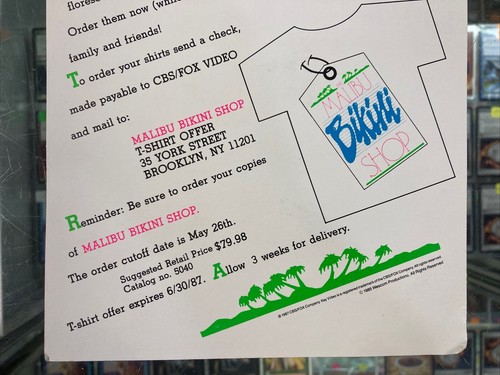 Order them now (
family and friends!
To order your shirts send a check,
made payable to CBS/FOX VIDEO
and mail to:
MALIBU BIKINI SHOP
T-SHIRT OFFER
35 YORK STREET
BROOKLYN, NY 11201
Reminder: Be sure to order your copies
of MALIBU BIKINI SHOP.
The order cutoff date is May 26th.
Suggested Retail Price $79.98
Catalog no. 5040
T-shirt offer expires 6/30/87. Allow 3 weeks for delivery.
MALIBU
Bikini
SHOP
© 1987 CBS/FOX Company. Key Video is a registered trademark of the CBS/FOX Company. All rights reserved.
© 1985 Wescom Productions. All Rights Reserved